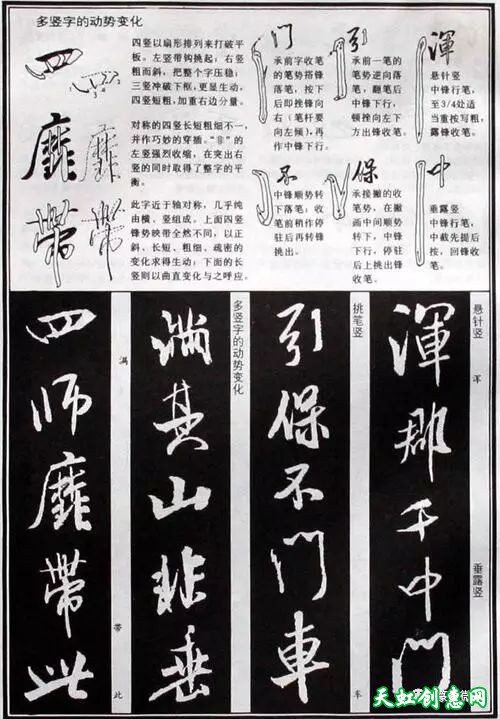 多竖字的动势变化
四
四竖以扇形排列来打破平
板。左竖带钩挑起；右竖
粗而斜，把整个字压稳；
三竖冲破下框，更显生动，
四竖短粗，加重右边分量。
靡
对称的四竖长短粗细不一，
并作巧妙的穿插。“非”的
左竖强烈收缩，在突出右
竖的同时取得了整字的平
衡。
帶
此字近于轴对称，几乎纯
由横、竖组成。上面四竖
锋势映带全然不同，以正
斜、长短、粗细、疏密的
变化求得生动；下面的长
竖则以曲直变化与之呼应。
门
承前字收笔
的笔势搭锋
落笔，按下
后即挫锋向
右（笔杆要
向左倾），再
作中锋下行。
引
承前一笔的
笔势逆向落
笔，翻笔后
中锋下行，
顿挫向左下
方出锋收笔。
渾
悬针竖
中锋行笔，
至3/4处适
当重按写粗，
露锋收笔。
不
中锋顺势转
下落笔；收
笔前稍作停
驻后再转锋
挑出。
保
承接撇的收
笔势，在撇
画中间顺势
转下，中锋
下行，停驻
后上挑出锋
收笔。
中
垂露竖
中锋行笔，
中截先提后
按，回锋收
笔。
悬针竖
浑
渾郡千中門
垂露竖
挑笔竖
引保不门車
车
多竖字的动势变化
满其山非垂
满
四师靡帶此
带
此
天虹创意网